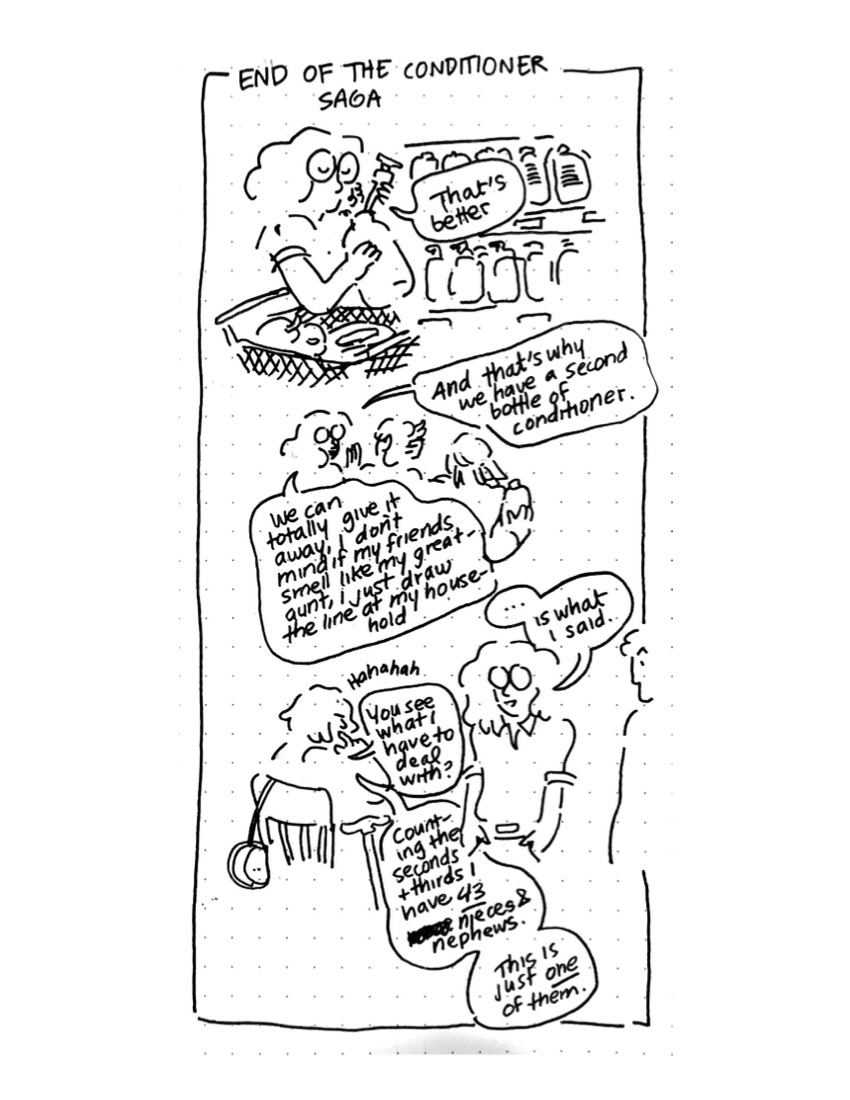 END OF THE CONDITIONER
SAGA
That's
better
And that's why
we have a second
bottle of
conditioner.
We can
totally give it
away, I don't
mind if my friends
smell like my great-
aunt, I just draw
the line at my house-
hold
... is what
I said.
Hahahah
You see
what I
have to
deal
with?
Count-
ing the
seconds
+ thirds I
have 43
nieces &
nephews.
This is
just one
of them.